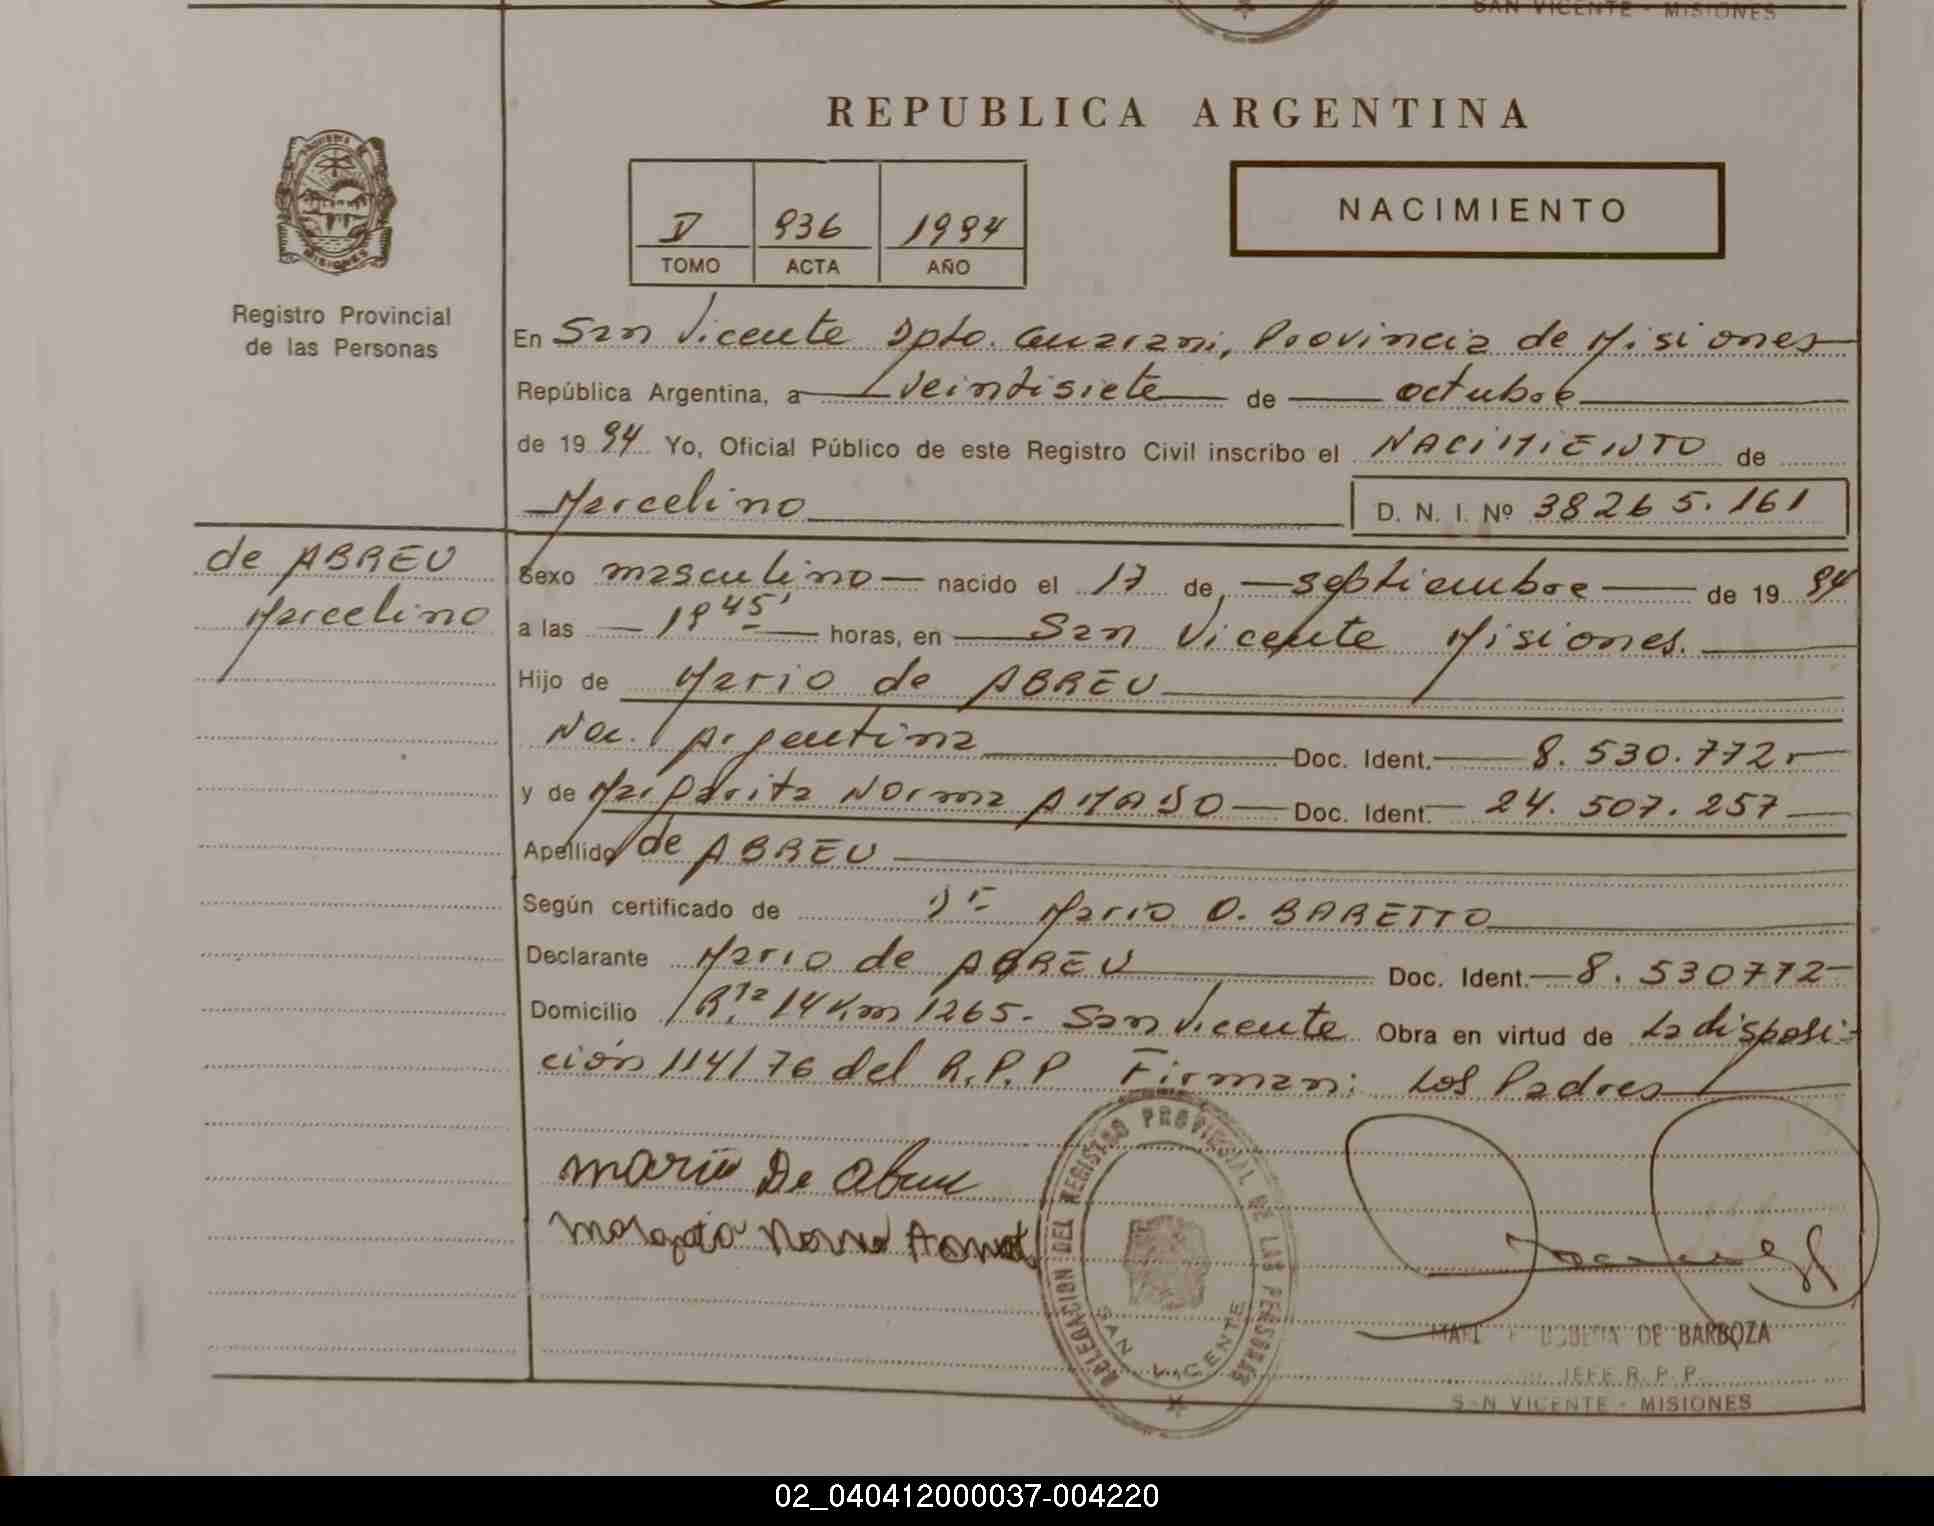 SAN VICENTE - MISIONES
REPUBLICA ARGENTINA
MISIONES
Registro Provincial
de las Personas
V 936 1994
TOMO ACTA AÑO
NACIMIENTO
En San Vicente Dpto. Guarani, Provincia de Misiones
República Argentina, a veintisiete de octubre
de 19 94 Yo, Oficial Público de este Registro Civil inscribo el NACIMIENTO de
Marcelino D. N. I. Nº 38265.161
de ABREU
Marcelino
Sexo masculino nacido el 17 de septiembre de 19 94
a las 19 45' horas, en San Vicente Misiones.
Hijo de Mario de ABREU
Nac. Argentina Doc. Ident. 8.530.772
y de Margarita Norma AMADO Doc. Ident. 24.507.257
Apellido de ABREU
Según certificado de Dr Mario O. BARETTO
Declarante Mario de ABREU Doc. Ident. 8.530772
Domicilio Rta 14 Km 1265- San Vicente Obra en virtud de La disposi-
ción 114/76 del R.P.P Firman: Los Padres
Mario De Abreu
Norma
DELEGACION DEL REGISTRO PROVINCIAL DE LAS PERSONAS
SAN VICENTE
DE BARBOZA
JEFE R. P. P.
S-N VICENTE - MISIONES
02_040412000037-004220